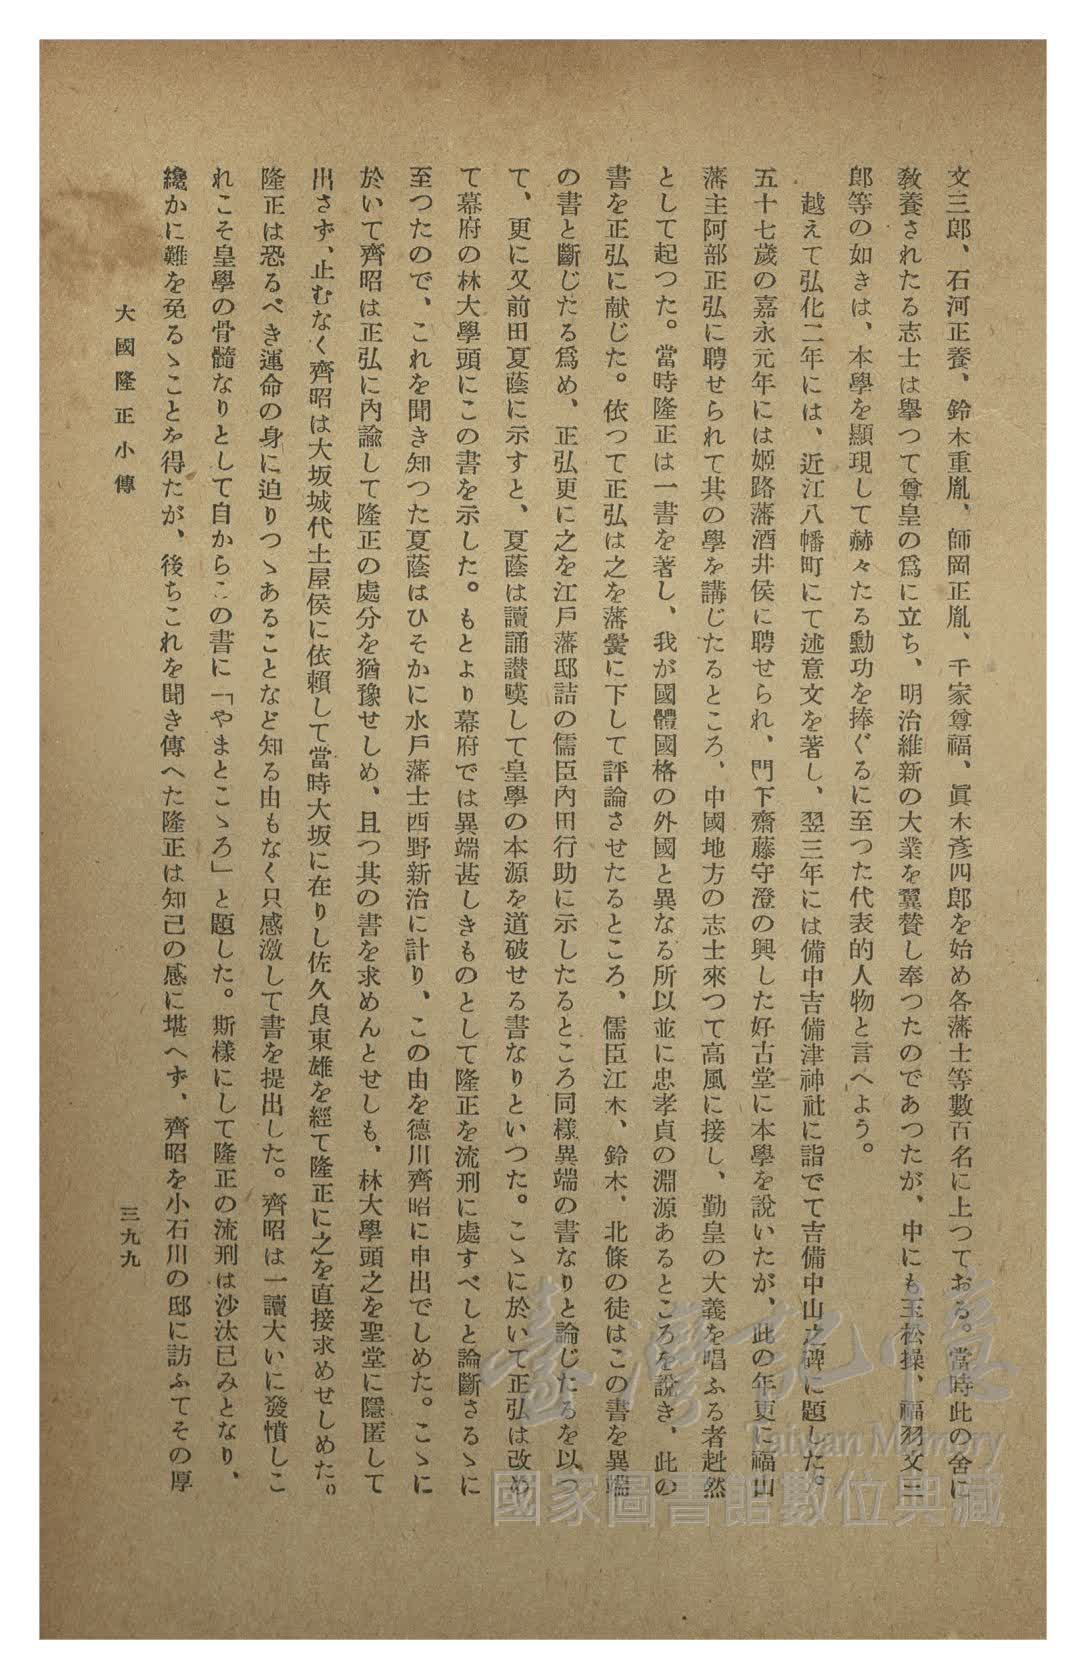 文三郎、石河正養、鈴木重胤、師岡正胤、千家尊福、眞木彥四郎を始め各藩士等數百名に上つておる。當時此の舍に
敎養されたる志士は擧つて尊皇の爲に立ち、明治維新の大業を翼贊し奉つたのであつたが、中にも玉松操、福羽文三
郎等の如きは、本學を顯現して赫々たる勳功を捧ぐるに至つた代表的人物と言へよう。
越えて弘化二年には、近江八幡町にて述意文を著し、翌三年には備中吉備津神社に詣でて吉備中山之碑に題した。
五十七歲の嘉永元年には姬路藩酒井侯に聘せられ、門下齋藤守澄の興した好古堂に本學を說いたが、此の年更に福山
藩主阿部正弘に聘せられて其の學を講じたるところ、中國地方の志士來つて高風に接し、勤皇の大義を唱ふる者赳然
として起つた。當時隆正は一書を著し、我が國體國格の外國と異なる所以並に忠孝貞の淵源あるところを說き、此の
書を正弘に献じた。依つて正弘は之を藩黌に下して評論させたるところ、儒臣江木、鈴木、北條の徒はこの書を異端
の書と斷じたる爲め、正弘更に之を江戶藩邸詰の儒臣內田行助に示したるところ同樣異端の書なりと論じたるを以つ
て、更に又前田夏蔭に示すと、夏蔭は讀誦讃嘆して皇學の本源を道破せる書なりといつた。こゝに於いて正弘は改め
て幕府の林大學頭にこの書を示した。もとより幕府では異端甚しきものとして隆正を流刑に處すべしと論斷さるゝに
至つたので、これを聞き知つた夏蔭はひそかに水戶藩士西野新治に計り、この由を德川齊昭に申出でしめた。こゝに
於いて齊昭は正弘に內諭して隆正の處分を猶豫せしめ、且つ其の書を求めんとせしも、林大學頭之を聖堂に隱匿して
出さず、止むなく齊昭は大坂城代土屋侯に依賴して當時大坂に在りし佐久良東雄を經て隆正に之を直接求めせしめた。
隆正は恐るべき運命の身に迫りつゝあることなど知る由もなく只感激して書を提出した。齊昭は一讀大いに發憤しこ
れこそ皇學の骨髓なりとして自からこの書に「やまとこゝろ」と題した。斯樣にして隆正の流刑は沙汰已みとなり、
纔かに難を免るゝことを得たが、後ちこれを聞き傳へた隆正は知己の感に堪へず、齊昭を小石川の邸に訪ふてその厚
大國隆正小傳
三九九
臺灣記憶
Taiwan Memory
國家圖書館數位典藏